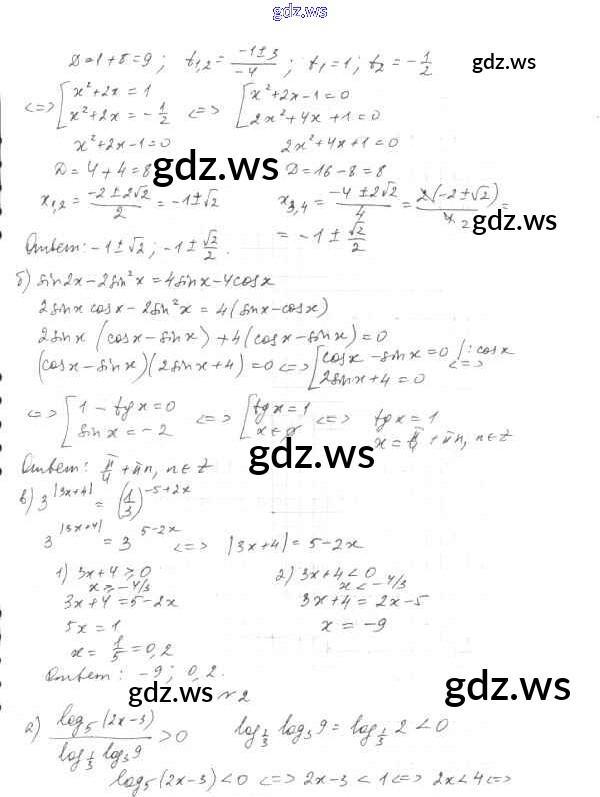 gdz.ws
D=1+8=9; t₁,₂ = (-1±3)/(-4); t₁=1; t₂=-1/2
gdz.ws
<=> [x²+2x=1 <=> [x²+2x-1=0
[x²+2x=-1/2 [2x²+4x+1=0
x²+2x-1=0 2x²+4x+1=0
D=4+4=8 D=16-8=8
gdz.ws
x₁,₂ = (-2±2√2)/2 = -1±√2 x₃,₄ = (-4±2√2)/4 = 2(-2±√2)/4 2 =
gdz.ws
= -1±√2/2
Ответ: -1±√2; -1±√2/2.
б) sin2x-2sin²x=4sinx-4cosx
2sinx cosx-2sin²x=4(sinx-cosx)
2sinx(cosx-sinx)+4(cosx-sinx)=0
(cosx-sinx)(2sinx+4)=0 <=> [cosx-sinx=0 |:cosx <=>
[2sinx+4=0
<=> [1-tgx=0 <=> [tgx=1 <=> tgx=1
[sinx=-2 [x∈∅ x=π/4+πn, n∈Z
gdz.ws
Ответ: π/4+πn, n∈Z
в) 3^|3x+4| = (1/3)^(-5+2x)
3^|3x+4| = 3^(5-2x) <=> |3x+4|=5-2x
1) 3x+4≥0 2) 3x+4<0
x≥-4/3 x<-4/3
3x+4=5-2x 3x+4=2x-5
5x=1 x=-9
x=1/5=0,2
Ответ: -9; 0,2.
gdz.ws
gdz.ws
№2
а) log₅(2x-3)/(log_1/3 log₃9) >0 log_1/3 log₃9=log_1/3 2<0
log₅(2x-3)<0 <=> 2x-3<1 <=> 2x<4 <=>